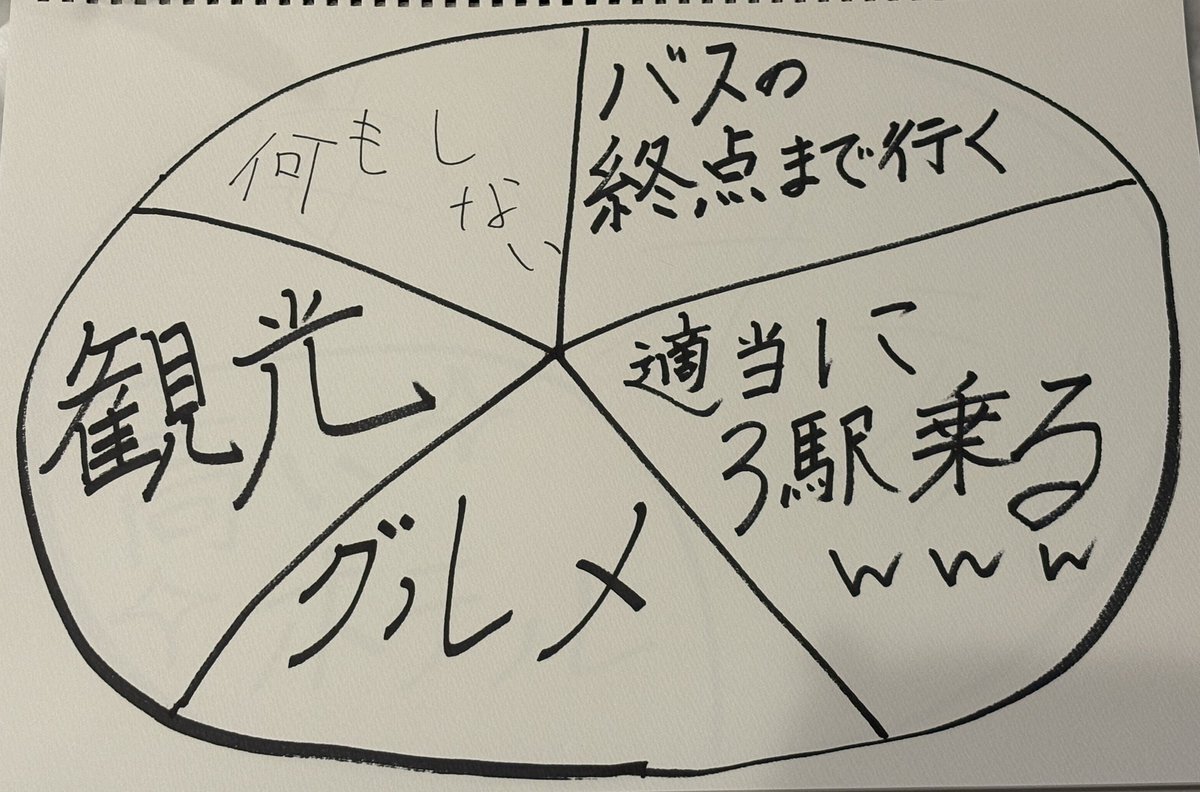 バスの
終点まで行く
適当に
3駅乗る
www
グルメ
観光
何もし
ない